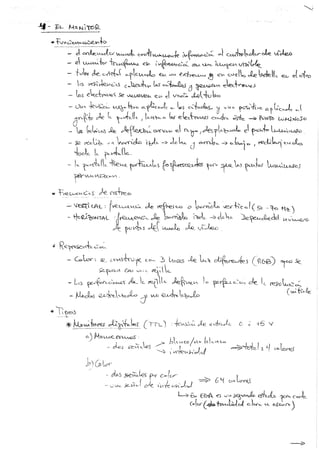 4- EL MONITOR
• Funcionamiento
- el ordenador manda continuamente información al controlador de vídeo
- el monitor transforma en información en un imagen visible
- tubo de cristal aplanado en un extremo y en cuello de botella en el otro
- La resistencia calienta los cátodos y generan electrones
- Los electrones se mueven en el vacío del tubo
- Una tensión negativa aplicada a los cátodos, y una positiva aplicada al
de la pantalla, los electrones contra éste → PUNTO LUMINOSO
- las bobinas de deflexión el rayo, desplazando el punto luminoso
- se realiza un barrido izda → dcha y arriba → abajo,
toda la pantalla.
- la pantalla tiene partículas fosforescentes por que los puntos luminosos
permanezcan
• Frecuencias de rastreo
- VERTICAL: frecuencia de refresco o barrido vertical (50 - 70 Hz)
- HORIZONTAL: frecuencia de barrido izda → dcha. Depende del número
de puntos del modo de vídeo
• Representación
- Color: se construye con 3 haces de luz diferentes (RGB) que se
separan con una rejilla
- Las perforaciones de la rejilla definen la perfección de la resolución
- Modos entrelazado y no entrelazado
• Tipos
* Monitores digitales (TTL): tensión de entrada 0 ó +5 V
a) Monocromos:
- dos señales
blanco/no blanco
intensidad
→ total: 4 colores
b) Color
- dos señales por color
- una señal de intensidad
⇒ 64 colores
↳ En EGA es una segunda señal para cada
color (tonalidad clara u oscura)